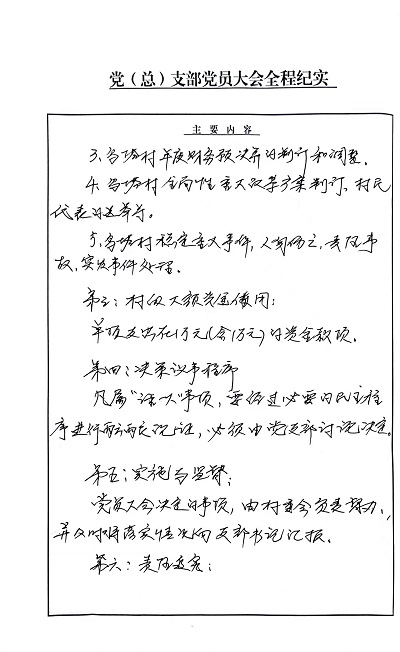 党（总）支部党员大会全程纪实
主要内容
3、乌坊村年度财务预决算的制订和调整。
4、乌坊村全局性重大改革方案制订，村民
代表的选举等。
5、乌坊村稳定重大事件，人员伤亡，责任事
故，突发事件处理。
第三：村级大额资金使用：
单项支出在1万元(含1万元)的资金款项。
第四：决策议事程序
凡属“三重一大”事项，要经过必要的民主程
序进行 论证，必须由党支部讨论决定。
第五：实施与监督：
党员大会决定的事项，由村委会负责督办，
并及时将落实情况向支部书记汇报。
第六：责任追究：